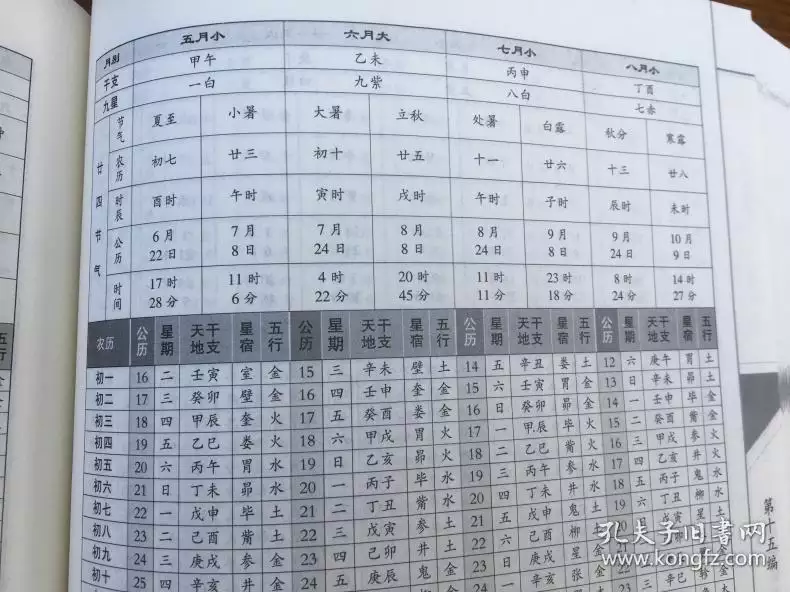 月别 五月小 六月大 七月小 八月小
干支 甲午 乙未 丙申 丁酉
九星 一白 九紫 八白 七赤
廿四节气
节气 夏至 小暑 大暑 立秋 处暑 白露 秋分 寒露
农历 初七 廿三 初十 廿五 十一 廿六 十三 廿八
时辰 酉时 午时 寅时 戌时 午时 子时 辰时 未时
公历 6月22日 7月8日 7月24日 8月8日 8月24日 9月8日 9月24日 10月9日
时间 17时28分 11时6分 4时22分 20时45分 11时11分 23时18分 8时24分 14时27分
农历 公历 星期 天地干支 星宿 五行 公历 星期 天地干支 星宿 五行 公历 星期 天地干支 星宿 五行 公历 星期 天地干支 星宿 五行
初一 16 二 壬寅 室 金 15 三 辛未 壁 土 14 五 辛丑 娄 土 12 六 庚午 胃 土
初二 17 三 癸卯 壁 金 16 四 壬申 奎 金 15 六 壬寅 胃 金 13 日 辛未 昴 土
初三 18 四 甲辰 奎 火 17 五 癸酉 娄 金 16 日 癸卯 昴 金 14 一 壬申 毕 金
初四 19 五 乙巳 娄 火 18 六 甲戌 胃 火 17 一 甲辰 毕 火 15 二 癸酉 觜 金
初五 20 六 丙午 胃 水 19 日 乙亥 昴 火 18 二 乙巳 觜 火 16 三 甲戌 参 火
初六 21 日 丁未 昴 水 20 一 丙子 毕 水 19 三 丙午 参 水 17 四 乙亥 井 火
初七 22 一 戊申 毕 土 21 二 丁丑 觜 水 20 四 丁未 井 水 18 五 丙子 鬼 水
初八 23 二 己酉 觜 土 22 三 戊寅 参 土 21 五 戊申 鬼 土 19 六 丁丑 柳 水
初九 24 三 庚戌 参 金 23 四 己卯 井 土 22 六 己酉 柳 土 20
初十 25 四 辛亥 井 金 24 五 庚辰 鬼 金 23 日 庚戌 星 金
24 一 辛亥 张 金
第十五编
孔夫子旧书网
www.kongfz.com